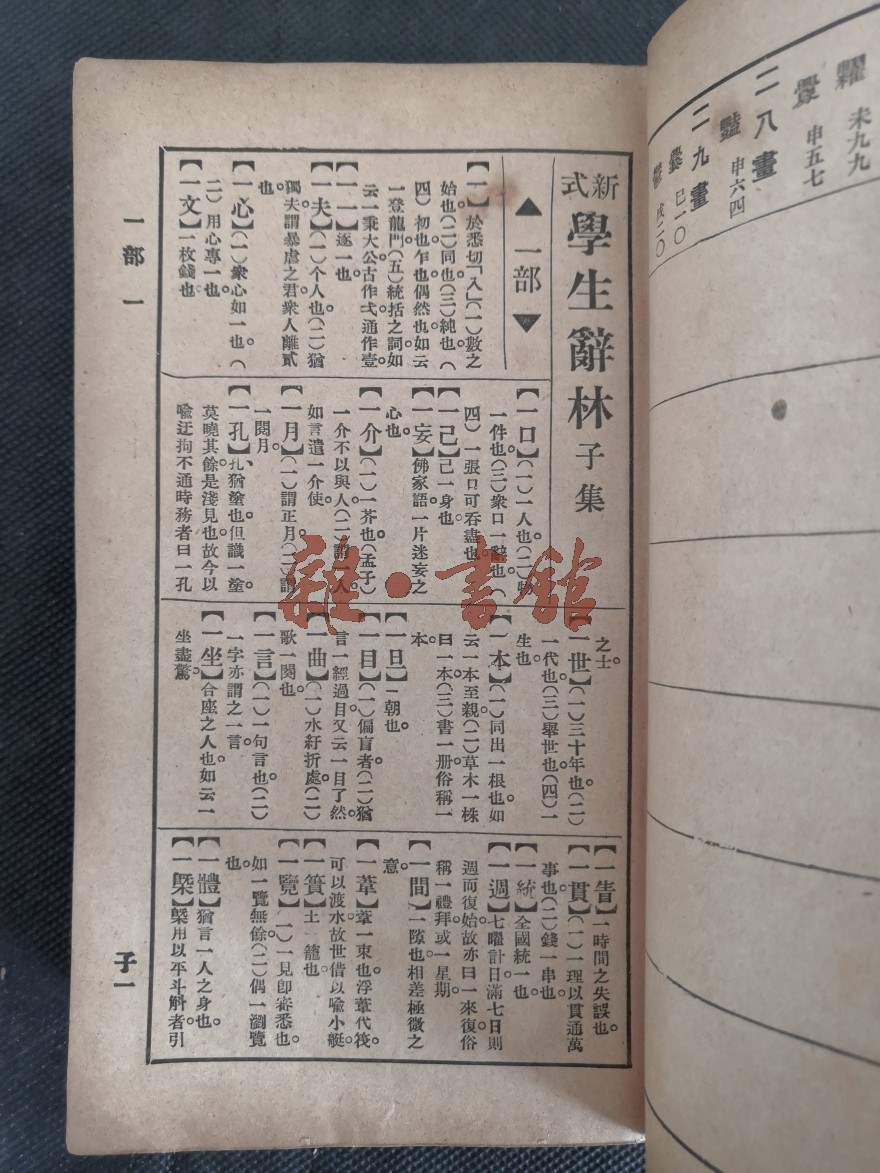 新式
學生辭林 子集
▲一部▼
【一】於悉切「入」(一)數之
始也。(二)同也。(三)純也。(
四)初也。乍也。偶然也。如云
一登龍門。(五)統括之詞。如
云一秉大公。古作弌。通作壹。
【一一】逐一也。
【一夫】(一)个人也。(二)猶
獨夫。謂暴虐之君。衆人離貳
也。
【一心】(一)衆心如一也。(
二)用心專一也。
【一文】一枚錢也。
【一口】(一)一人也。(二)物
一件也。(三)衆口一辭也。(
四)一張口可吞盡也。
【一己】己一身也。
【一妄】佛家語。一片迷妄之
心也。
【一介】(一)一芥也。(孟子)
一介不以與人。(二)謂一人。
如言遣一介使。
【一月】(一)謂正月。(二)謂
一閱月。
【一孔】孔、猶塗也。但識一塗。
莫曉其餘。是淺見也。故今以
喩迂拘不通時務者曰一孔
之士。
【一世】(一)三十年也。(二)
一代也。(三)舉世也。(四)一
生也。
【一本】(一)同出一根也。如
云一本至親。(二)草木一株
曰一本。(三)書一册。俗稱一
本。
【一旦】一朝也。
【一目】(一)偏盲者。(二)猶
言一經過目。又云一目了然。
【一曲】(一)水紆折處。(二)
歌一闋也。
【一言】(一)一句言也。(二)
一字亦謂之一言。
【一坐】合座之人也。如云一
坐盡驚。
【一眚】一時間之失誤也。
【一貫】(一)一理以貫通萬
事也。(二)錢一串也。
【一統】全國統一也。
【一週】七曜計日。滿七日則
週而復始。故亦曰一來復。俗
稱一禮拜。或一星期。
【一間】一隙也。相差極微之
意。
【一葦】葦一束也。浮葦代筏。
可以渡水。故世借以喩小艇。
【一簣】土一籠也。
【一覽】(一)一見卽審悉也。
如一覽無餘。(二)偶一瀏覽
也。
【一體】猶言一人之身也。
【一槩】槩用以平斗斛者。引
一部 一
子一
未九九
申五七
二八畫
申六四
二九畫
爨 巳一〇
戌二〇
雜·書館